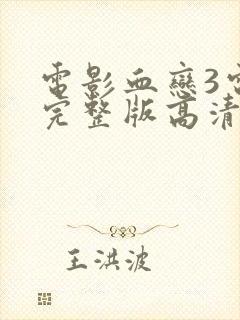 電影血戀3電
完整版高清
王洪波